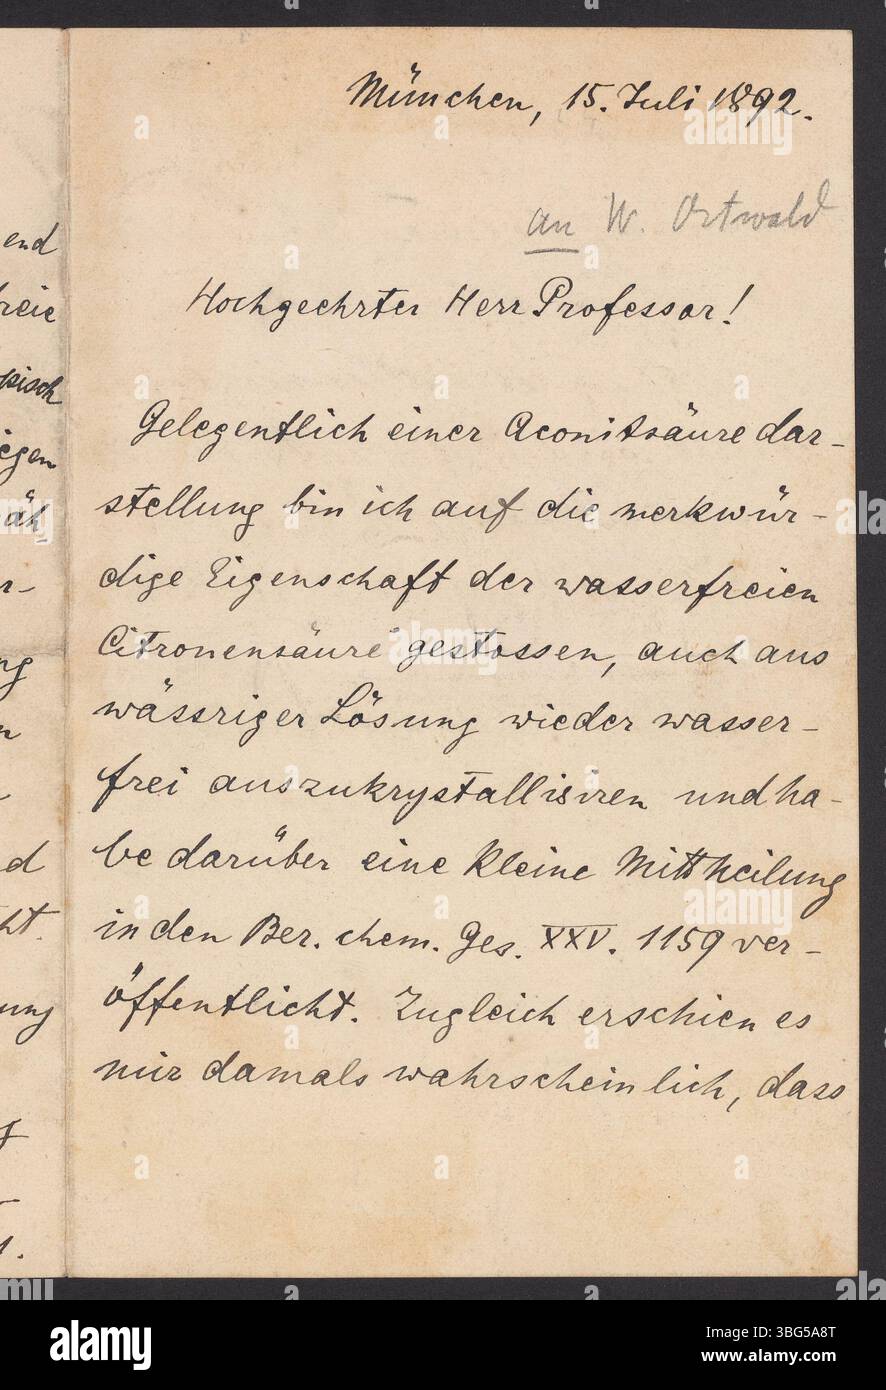 München, 15. Juli 1892.
an W. Ostwald
Hochgeehrter Herr Professor!
Gelegentlich einer Aconitsäuredar-
stellung bin ich auf die merkwür-
dige Eigenschaft der wasserfreien
Citronensäure gestossen, auch aus
wässriger Lösung wieder wasser-
frei auszukrystallisiren und ha-
be darüber eine kleine Mittheilung
in den Ber. chem. Ges. XXV. 1159 ver-
öffentlicht. Zugleich erschien es
mir damals wahrscheinlich, dass
end
reie
pisch
egen
äh
r-
ng
n
d
ht.
ung
alamy
Image ID: 3BG5A8T
www.alamy.com